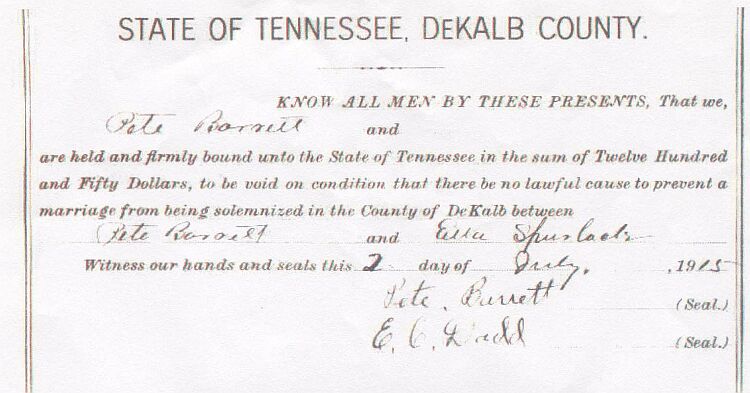 STATE OF TENNESSEE, DEKALB COUNTY.
KNOW ALL MEN BY THESE PRESENTS, That we,
Pete Barrett and
are held and firmly bound unto the State of Tennessee in the sum of Twelve Hundred
and Fifty Dollars, to be void on condition that there be no lawful cause to prevent a
marriage from being solemnized in the County of DeKalb between
Pete Barrett and Ella Spurlock
Witness our hands and seals this 2 day of July, 1915
Pete. Barrett (Seal.)
E. C. Dodd (Seal.)